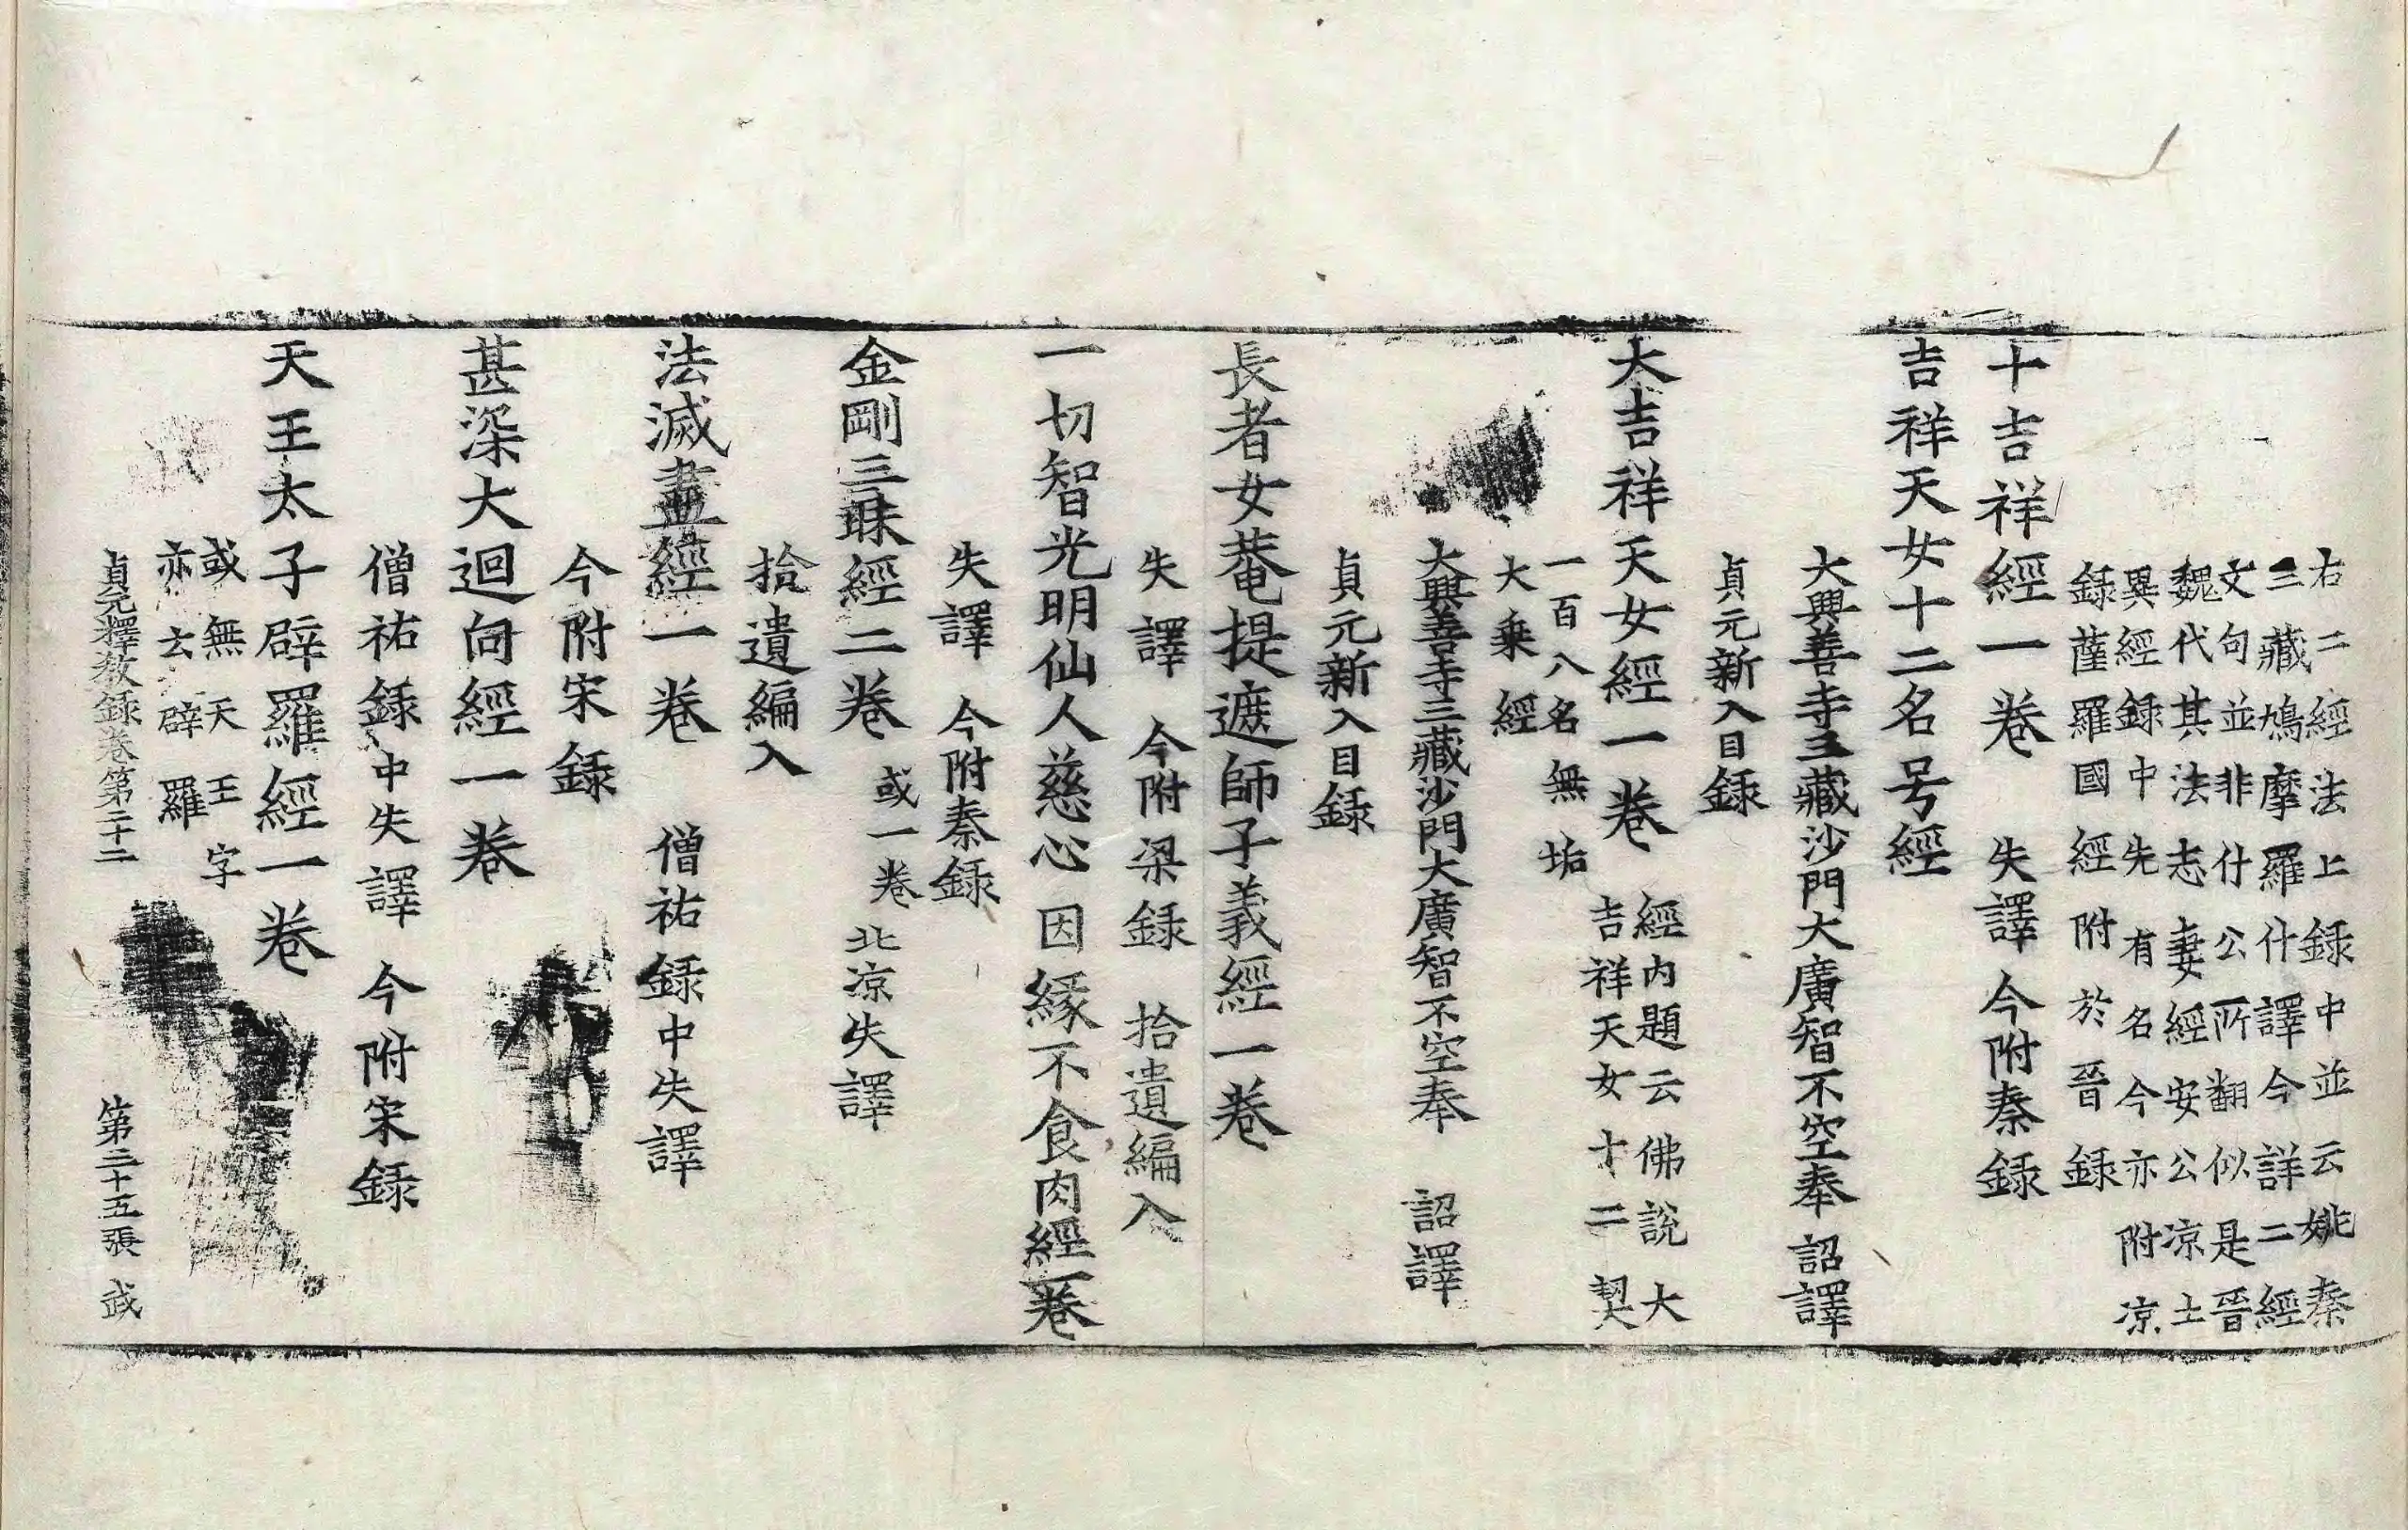 右二經法上錄中並云姚秦
三藏鳩摩羅什譯今詳二經
文句並非什公所翻似是晉
魏代其法志妻經安公涼土
異經錄中先有名今亦附涼
錄薩羅國經附於晉錄
十吉祥經一卷　失譯今附秦錄
吉祥天女十二名号經
大興善寺三藏沙門大廣智不空奉　詔譯
貞元新入目錄
大吉祥天女經一卷　經内題云佛說大
吉祥天女十二契
一百八名無垢
大乗經
大興善寺三藏沙門大廣智不空奉　詔譯
貞元新入目錄
長者女菴提遮師子義經一卷
失譯　今附梁錄　拾遺編入
一切智光明仙人慈心因緣不食肉經一卷
失譯　今附秦錄
金剛三昧經二卷　或一卷　北涼失譯
拾遺編入
法滅盡經一卷　僧祐錄中失譯
今附宋錄
甚深大迴向經一卷
僧祐錄中失譯　今附宋錄
天王太子辟羅經一卷
或無天王字
亦云辟羅
貞元釋教錄卷第二十二　第二十五張　武